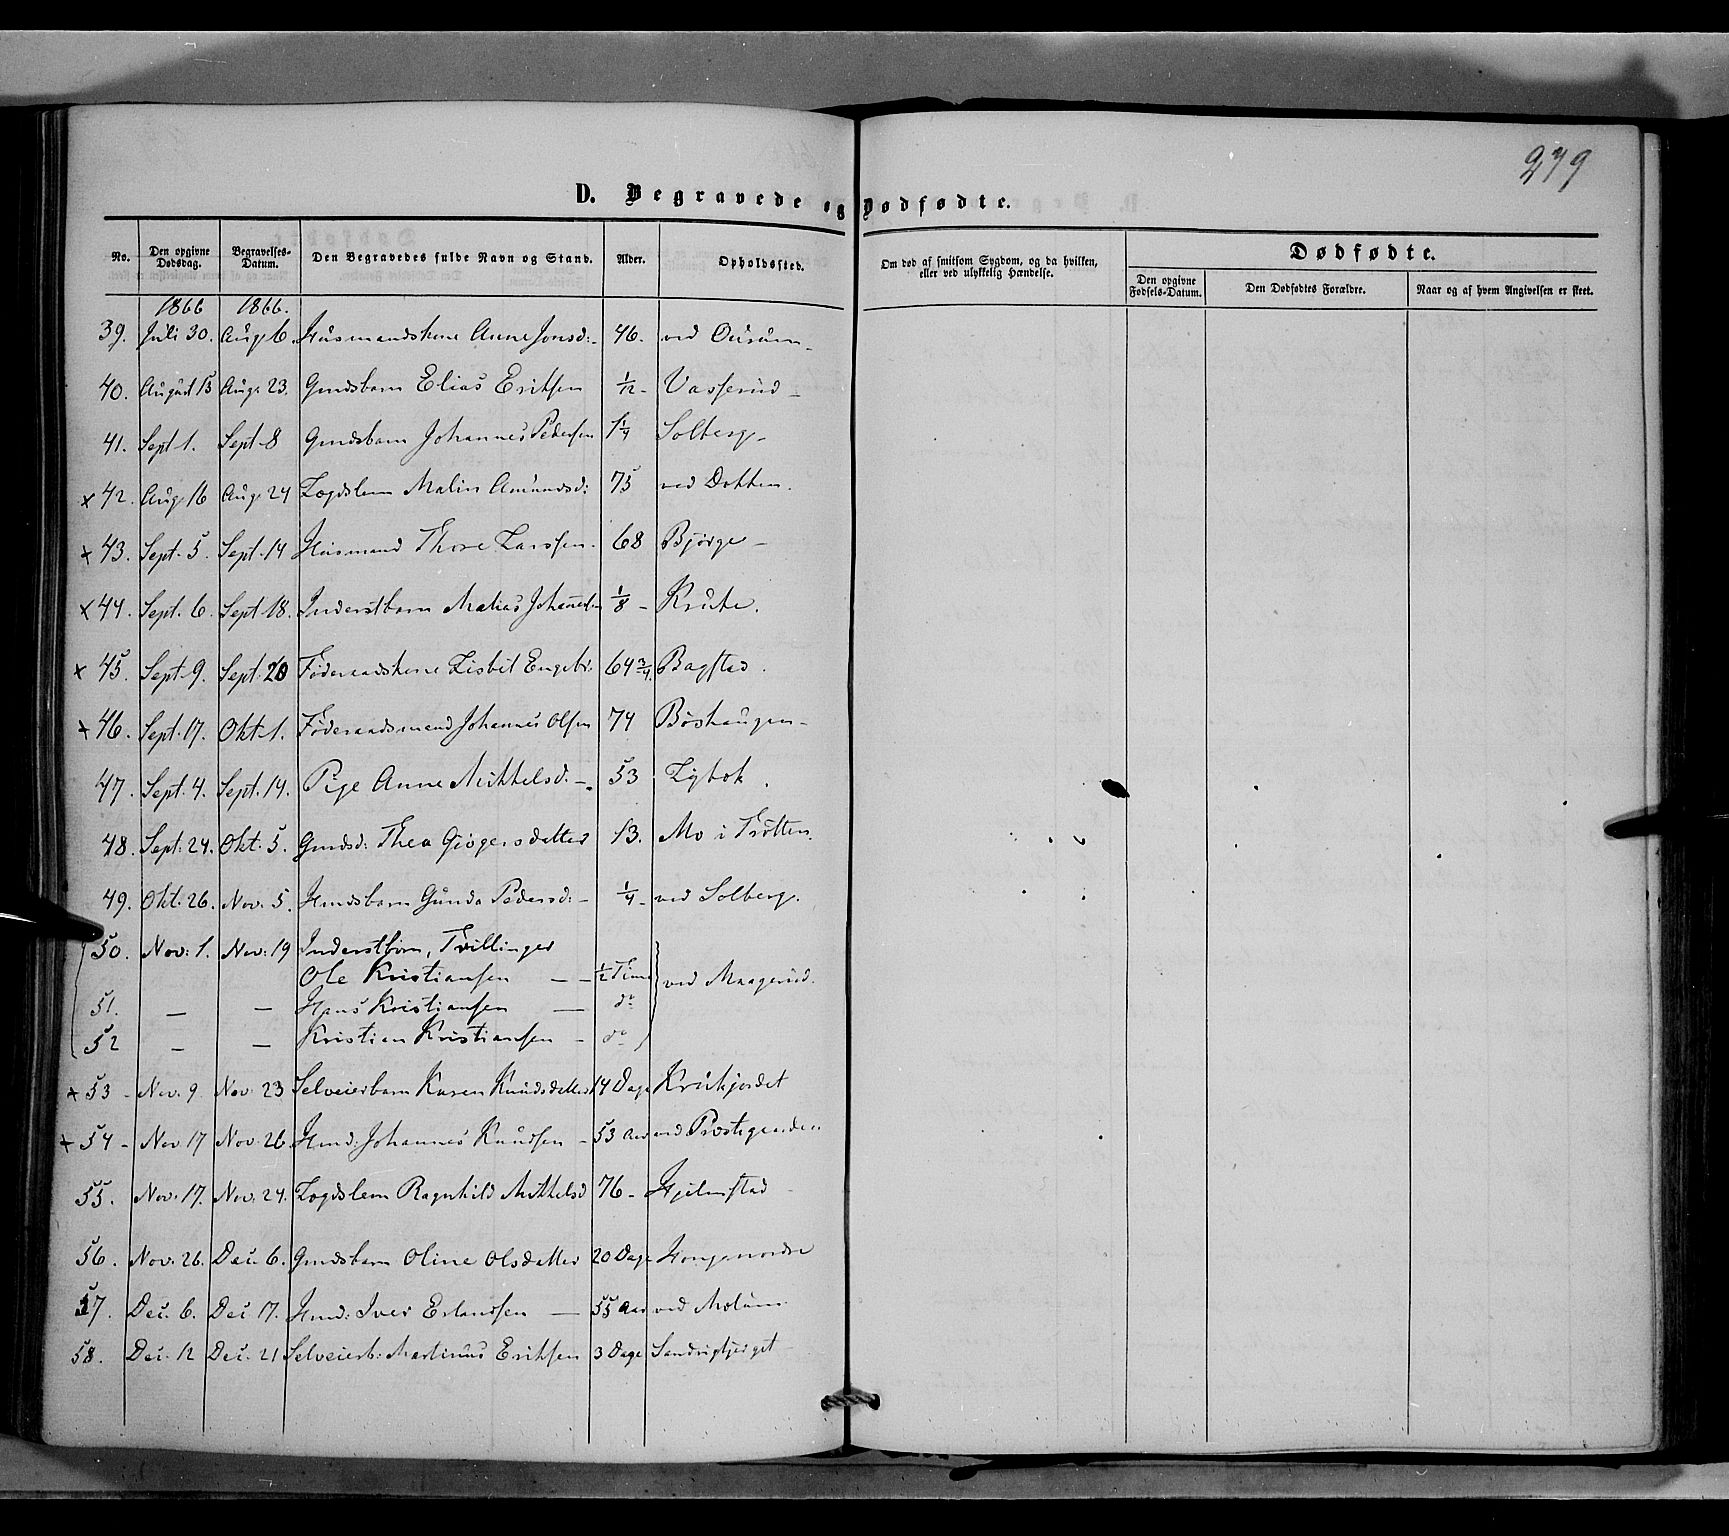 279
D. Begravede og Dødfødte.
No. Den opgivne Dødsdag. Begravelses-Datum. Den Begravedes fulde Navn og Stand. Alder. Opholdssted. Om død af smitsom Sygdom, og da hvilken, eller ved ulykkelig Hændelse. Dødfødte.
Den opgivne Fødsels-Datum. Den Dødfødtes Forældre. Naar og af hvem Angivelsen er skeet.
1866 1866.
39. Juli 30. Aug. 6. Husmandskone Anne Jonsd: 46. ved
40. August 13 Aug. 23. Gmdsbarn Elias Eriksen 1/12 - Vasserud -
41. Sept. 1. Sept. 8 Gmdsbarn Johannes Pedersen 1 1/4 Solberg -
x 42. Aug. 16 Aug. 24 Lægdslem Malin Amundsd: 75 ved Dokken.
x 43. Sept. 5. Sept. 14 Husmand Thore Larssen. 68 Bjørge -
x 44. Sept. 6. Sept. 18. Inderstbarn Matias 1/8 - Krute.
x 45. Sept. 9. Sept. 20 Føderaadskone Lisbet Engebr: 64 3/4 Bagstad.
x 46. Sept. 17. Okt. 1. Føderaadsmand Johannes Olsen 74 Bøshaugen -
47. Sept. 4. Sept. 14. Pige Anne Mikkelsd. - 53
48. Sept. 24. Okt. 5. Gmdsd: Thea 13. Mo i Trøtten.
49. Okt. 26. Nov. 5. Hmdsbarn Gunda Pedersd: - 1/4 - ved Solberg.
50. Nov: 1. Nov: 19 Inderstbørn, Trillinger
Ole Kristiansen - - 1/2 Time ved Maagerud.
51. - - Hans Kristiansen - do
52 - - Kristian Kristiansen - do
x 53 - Nov. 9 Nov. 23 Selveierbarn Karen Knudsdatter 14 Dage Krukjordet
x 54 - Nov 17 Nov. 26 Hmd: Johannes Knudsen - 53 Aar ved
55. Nov. 17. Nov. 24. Lægdslem Ragnhild Mikkelsd 76 - Hjelmstad -
56. Nov. 26. Dec. 6. Gmdsbarn Oline Olsdatter 20 Dage
57. Dec. 6. Dec 17. Hmd: Iver Erlandsen - 55 Aar ved
58. Dec. 12 Dec. 21 Selveierb: Martinus Eriksen 3 Dage